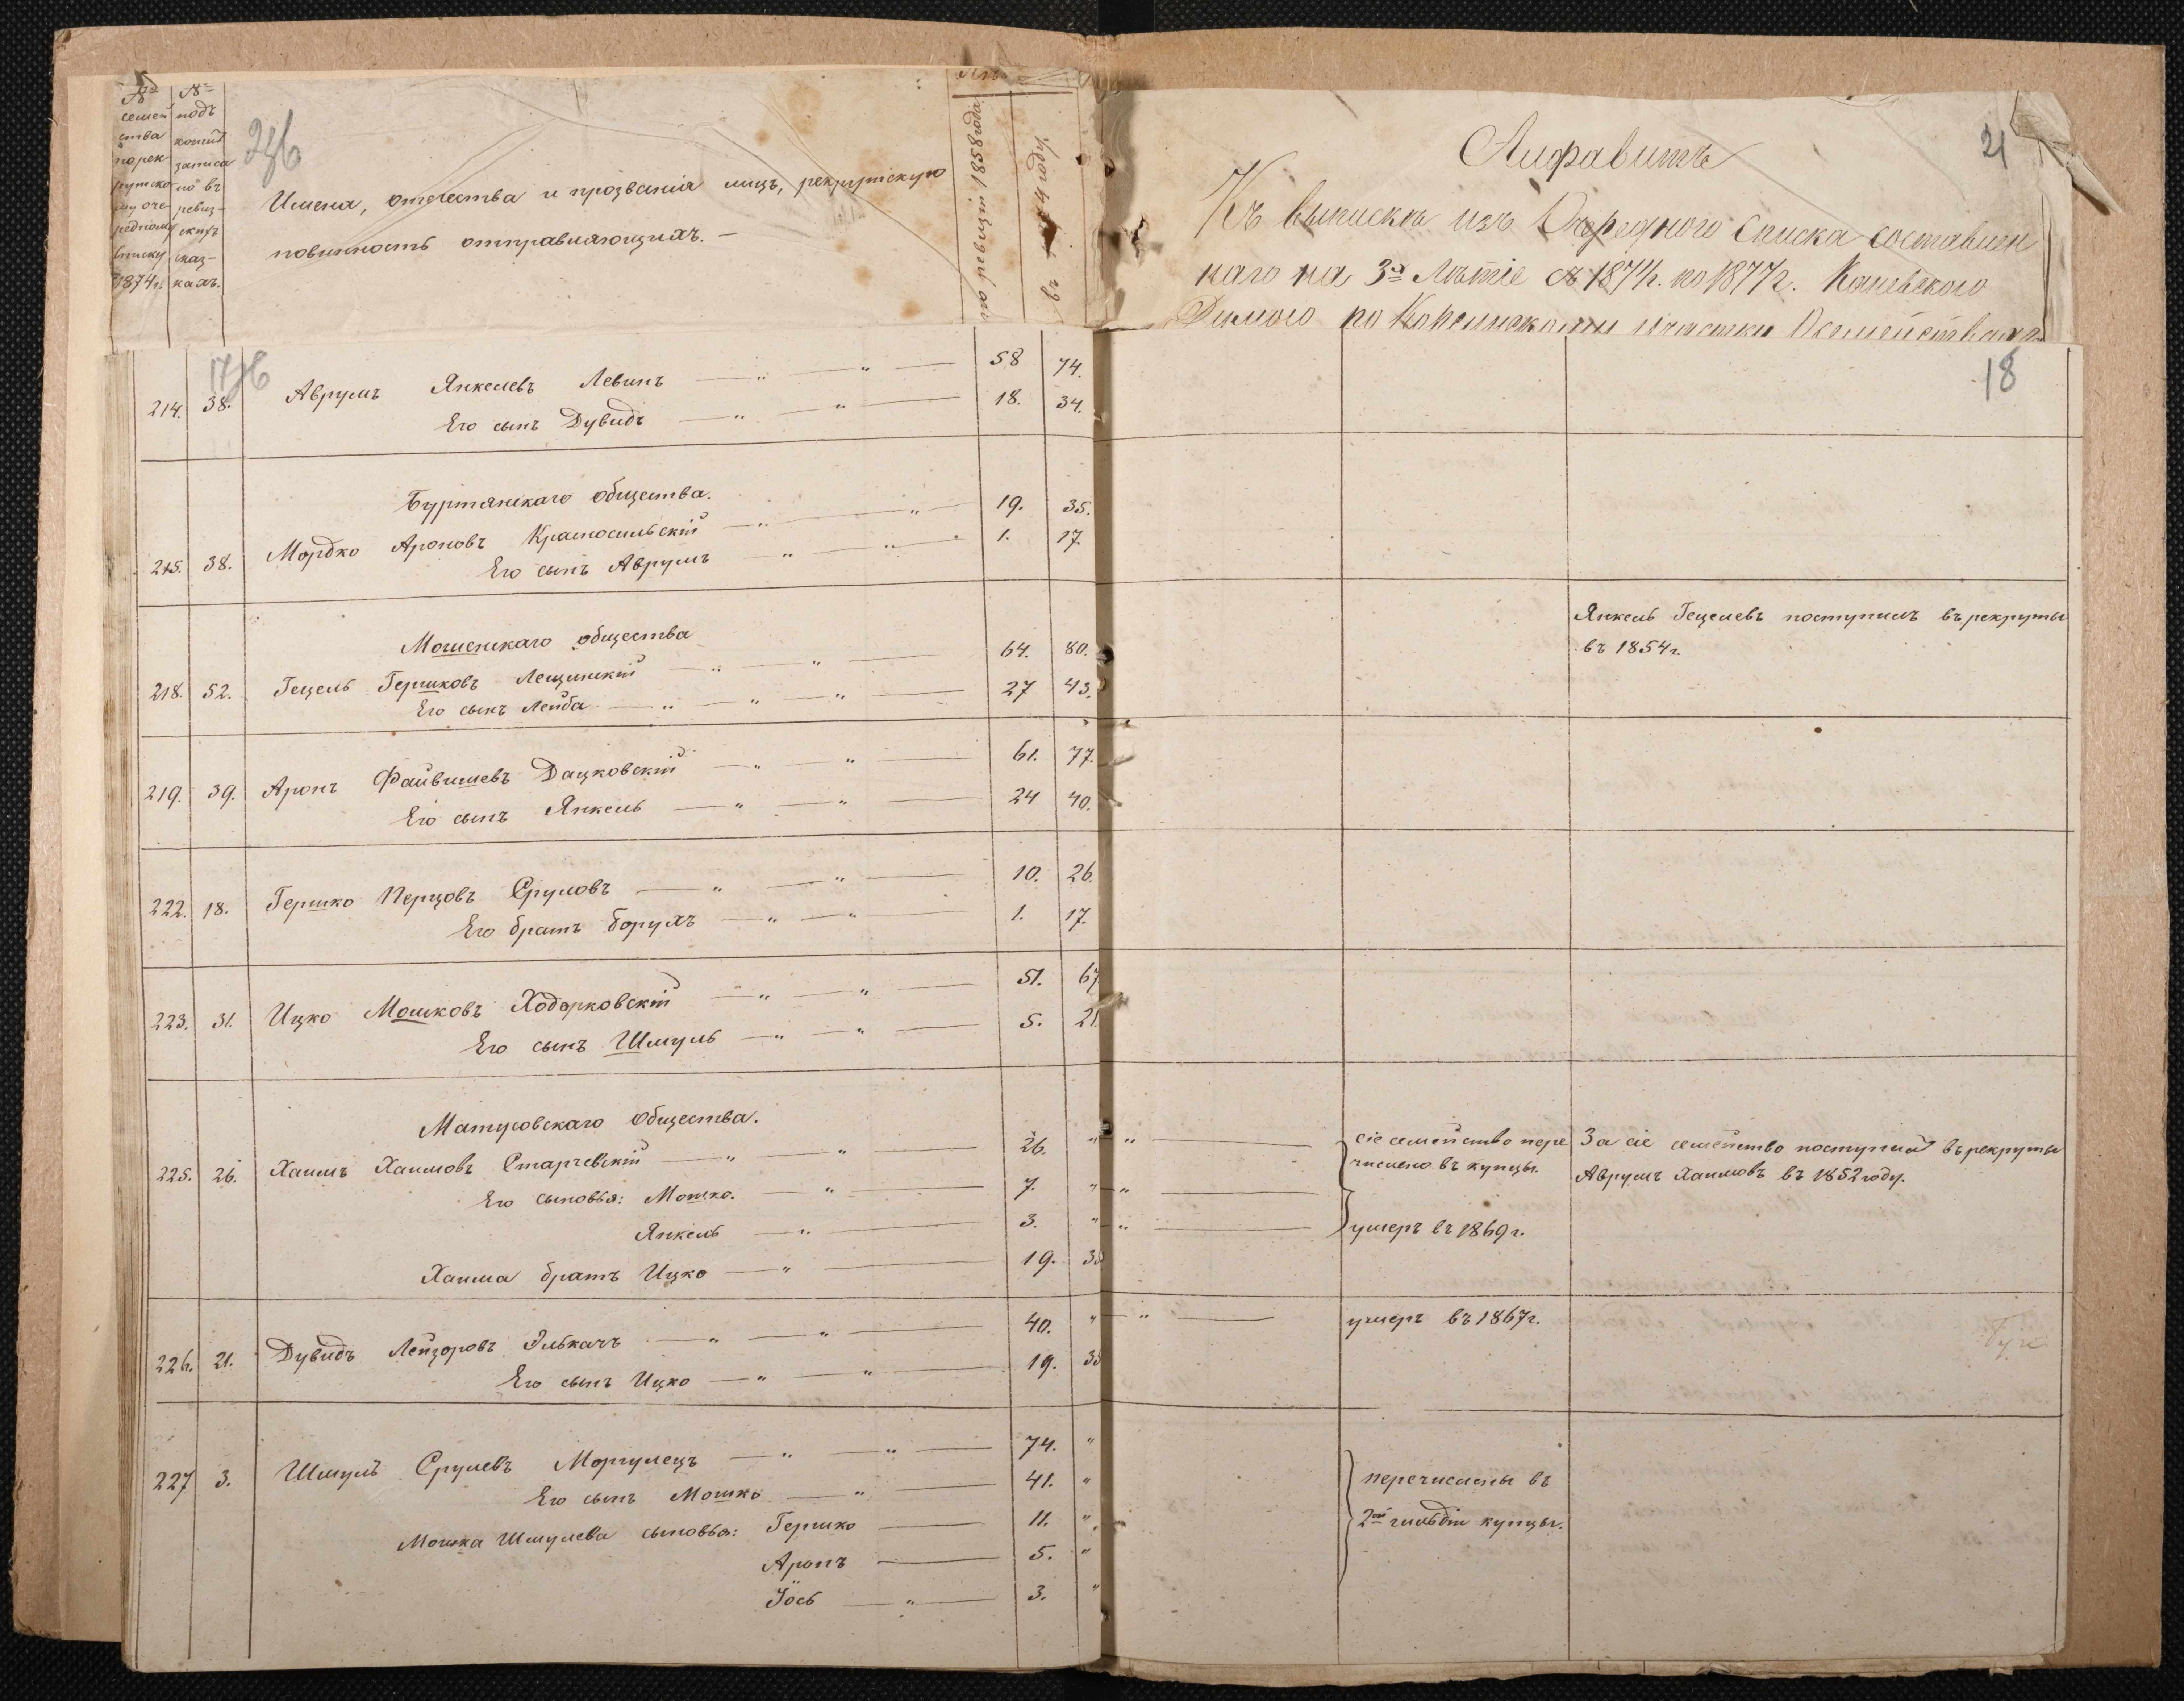 № семейства по рекрутскому очередному списку 1874 г.
№ подъ коимъ записано въ ревизскихъ сказкахъ.
Имена, отчества и прозванія лицъ, рекрутскую
повинность отправляющихъ. —
по ревизіи 1858 года
въ 1874 году.
21
Алфавитъ
Къ выписки изъ Очереднаго Списка составлен
наго на 3х Лѣтіе съ 1874 г. по 1877 г. Каневскаго
18
214. 38. Аврумъ Янкелевъ Левинъ — " — " — 58 74.
Его сынъ Дувидъ — " — " — 18. 34.
Буртянскаго общества.
215. 38. Мордко Ароновъ Красносельскій — " — " — 19. 35.
Его сынъ Аврумъ " — " — 1. 17.
Мошенскаго общества
218. 52. Гецель Гершковъ Лещинскій — " — " — 64. 80.
Его сынъ Лейба — " — " — " — 27 43.
Янкель Гецелевъ поступилъ въ рекруты
въ 1854 г.
219. 39. Аронъ Файвишевъ Дацковскій — " — " — 61. 77.
Его сынъ Янкель — " — " — 24 40.
222. 18. Гершко Перцовъ Сруловъ — " — " — 10. 26.
Его братъ Борухъ — " — " — 1. 17.
223. 31. Ицко Мошковъ Ходорковскій — " — " — 51. 67
Его сынъ Шмуль — " — " — 5. 21.
Матусовскаго Общества.
225. 26. Хаимъ Хаимовъ Старчевскій — " — " — 26. " " —
Его сыновья: Мошко. — " — 7. " " —
Янкель — " — 3. " " —
Хаима братъ Ицко — " — 19. 35
сіе семейство пере
числено въ купцы.
умеръ въ 1869 г.
За сіе семейство поступилъ въ рекруты
Аврумъ Хаимовъ въ 1852 году.
226. 21. Дувидъ Лейзоровъ Элькачъ — " — " — 40. " " — умеръ въ 1867 г.
Его сынъ Ицко — " — " — 19. 35
227 3. Шмуль Срулевъ Моргулецъ — " — " — 74. "
Его сынъ Мошко — " — 41. "
Мошка Шмулева сыновья: Гершко — 11. "
Аронъ — 5. "
Іось — " — 3. "
перечислены въ
2ой гильдіи купцы.